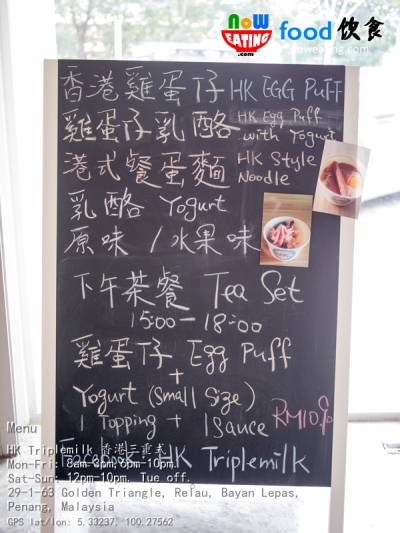 NOW EATING .com food 饮食
noweating.com
香港雞蛋仔 HK EGG PUFF
雞蛋仔乳酪 HK Egg Puff with Yogurt
港式餐蛋麵 HK Style Noodle
乳酪 Yogurt
原味 / 水果味
下午茶餐 Tea Set
15:00 - 18:00
雞蛋仔 Egg Puff
+
Yogurt (Small Size)
1 Topping + 1 Sauce
Facebook: HK Triplemilk
Menu
HK Triplemilk 香港三重式
Mon-Fri: 8am-3pm,6pm-10pm.
Sat-Sun: 12pm-10pm. Tue off.
29-1-63 Golden Triangle, Relau, Bayan Lepas,
Penang, Malaysia
GPS lat/lon: 5.33237, 100.27562